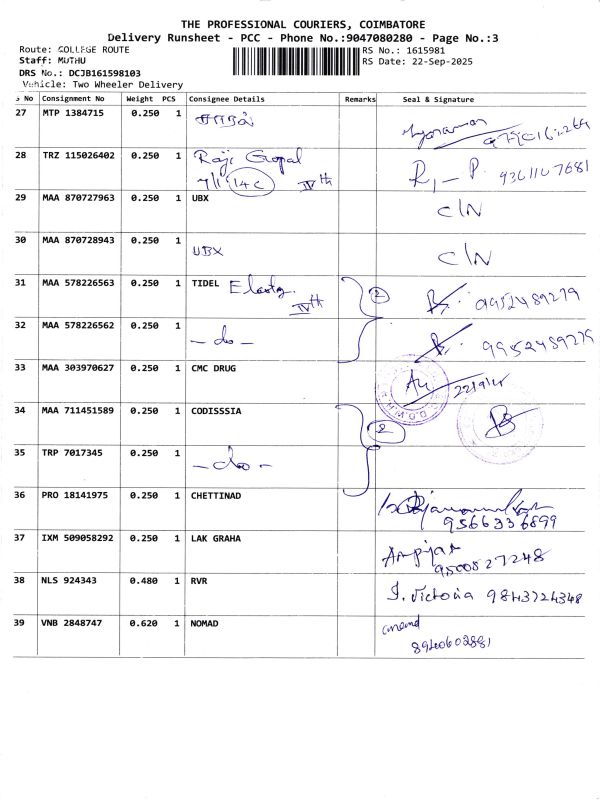 THE PROFESSIONAL COURIERS, COIMBATORE
Delivery Runsheet - PCC - Phone No.:9047080280 - Page No.:3
Route: COLLEGE ROUTE
Staff: MUTHU
DRS No.: DCJB161598103
Vehicle: Two Wheeler Delivery
RS No.: 1615981
RS Date: 22-Sep-2025
S No Consignment No Weight PCS Consignee Details Remarks Seal & Signature
27 MTP 1384715 0.250 1
28 TRZ 115026402 0.250 1 Raji Gopal
14C IVth
29 MAA 870727963 0.250 1 UBX C/N
30 MAA 870728943 0.250 1 UBX C/N
31 MAA 578226563 0.250 1 TIDEL 2 9952489279
IVth
32 MAA 578226562 0.250 1 - do - 9952489279
33 MAA 303970627 0.250 1 CMC DRUG
34 MAA 711451589 0.250 1 CODISSSIA 2
35 TRP 7017345 0.250 1 - do -
36 PRO 18141975 0.250 1 CHETTINAD
9566336899
37 IXM 509058292 0.250 1 LAK GRAHA
9500527248
38 NLS 924343 0.480 1 RVR J. Victoria 9843724348
39 VNB 2848747 0.620 1 NOMAD
8940602881